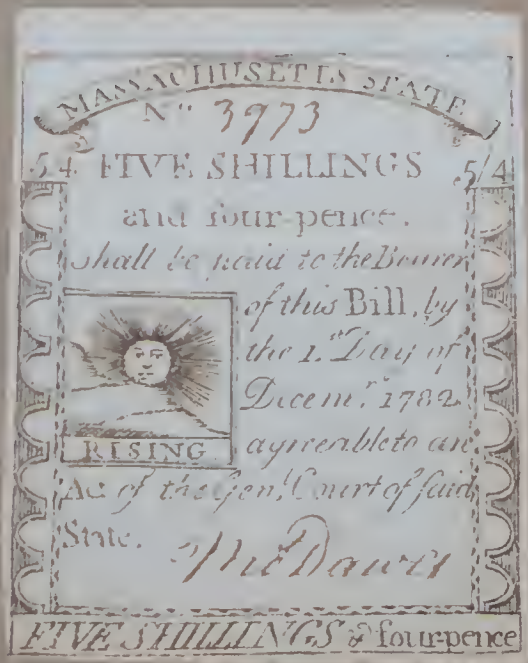 MASSACHUSETTS STATE
No 3973
5/4 FIVE SHILLINGS 5/4
and four-pence.
shall be paid to the Bearer
of this Bill, by
the 1.st Day of
Decem.r 1782
RISING agreeable to an
Act of the Gen.l Court of said
State.
Tho.s Dawes
FIVE SHILLINGS & four-pence